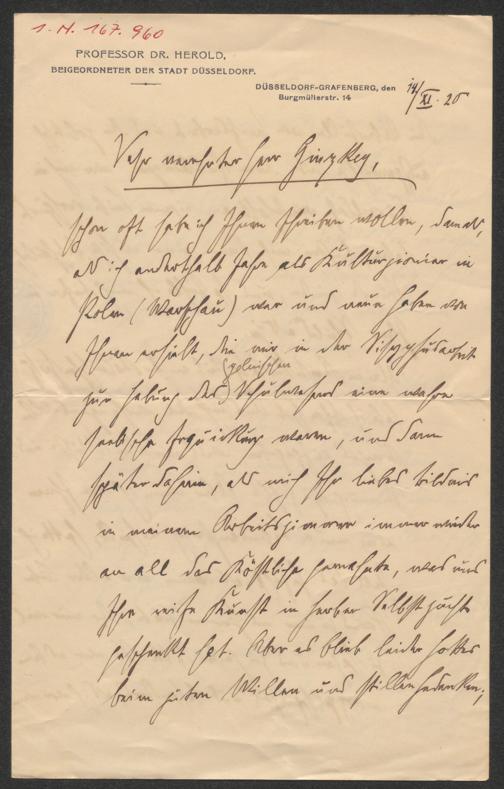 I. N. 167.960
PROFESSOR DR. HEROLD,
BEIGEORDNETER DER STADT DÜSSELDORF.
DÜSSELDORF-GRAFENBERG, den 14/XI. 20
Burgmüllerstr. 14
Sehr verehrter Herr Ginzkey,
schon oft habe ich Ihnen schreiben wollen, damals,
als ich anderthalb Jahre als Kulturpionier in
Polen (Warschau) war und neue Gaben von
Ihnen erhielt, die mir in der Sisyphusarbeit
zur Hebung des polnischen Schulwesens eine wahre
seelische Erquickung waren, und dann
später daheim, als mich Ihr liebes Bildnis
in meinem Arbeitszimmer immer wieder
an all das Köstliche gemahnte, was uns
Ihre reife Kunst in herber Selbstzucht
geschenkt hat. Aber es blieb leider
beim guten Willen und stillen Gedenken;